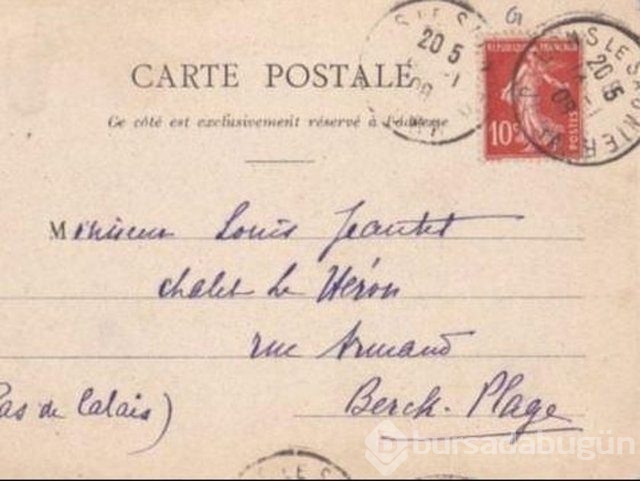 CARTE POSTALE
Ce côté est exclusivement réservé à l'adresse
RÉPUBLIQUE FRANÇAISE
10c
POSTES
20 5
09
20 15
09
Monsieur Louis Jeantet
chalet Le Héron
rue Armand
Berck-Plage
Pas de Calais)
bursadabugün